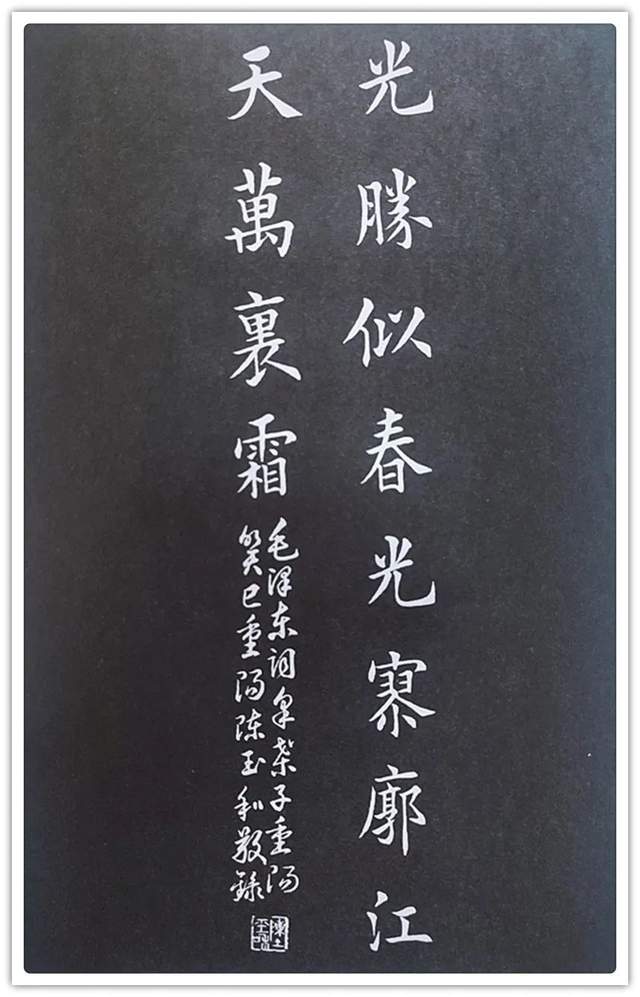 光勝似春光寥廓江
天萬裏霜
毛泽东词采桑子重阳
癸巳重阳陈玉和敬録